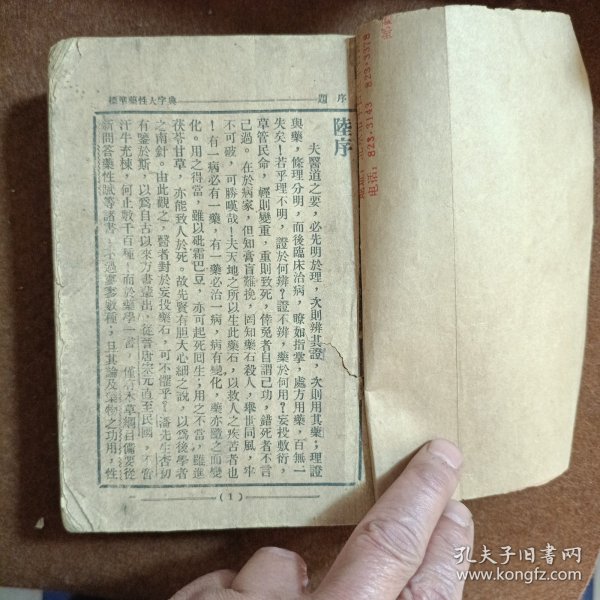 標準藥性大字典
題序
陸序
夫醫道之要，必先明於理，次則辨其證，次則用其藥；理證
與藥，條理分明，而後臨床治病，瞭如指掌，處方用藥，百無一
失矣！若乎理不明，證於何辨？證不辨，藥於何用？妄投敷衍，
草管民命，輕則變重，重則致死，倖免者自謂己功，錯死者不言
己過。在於病家，但知膏肓難挽，罔知藥石殺人，舉世同風，牢
不可破，可勝嘆哉！夫天地之所以生此藥石，以救人之疾苦者也
！有一病必有一藥，有一藥必治一病，病有變化，藥亦隨之而變
化。用之得當，雖以砒霜巴豆，亦可起死回生；用之不當，雖進
茯苓甘草，亦能致人於死。故先賢有胆大心細之說，以爲後學者
之南針。由此觀之，醫者對於妄投藥石，可不懼乎？潘先生杏初
有鑒於斯，以爲自古以來方書輩出，從晉唐宋元直至民國，不啻
汗牛充棟，何止數千百種，而於藥學一書，僅有本草綱目備要從
新問答藥性賦等諸書，不過寥寥數種；且其論及藥物之功用，性
（1）
電話：823.3143 823.3378
孔夫子旧书网
www.kongfz.com